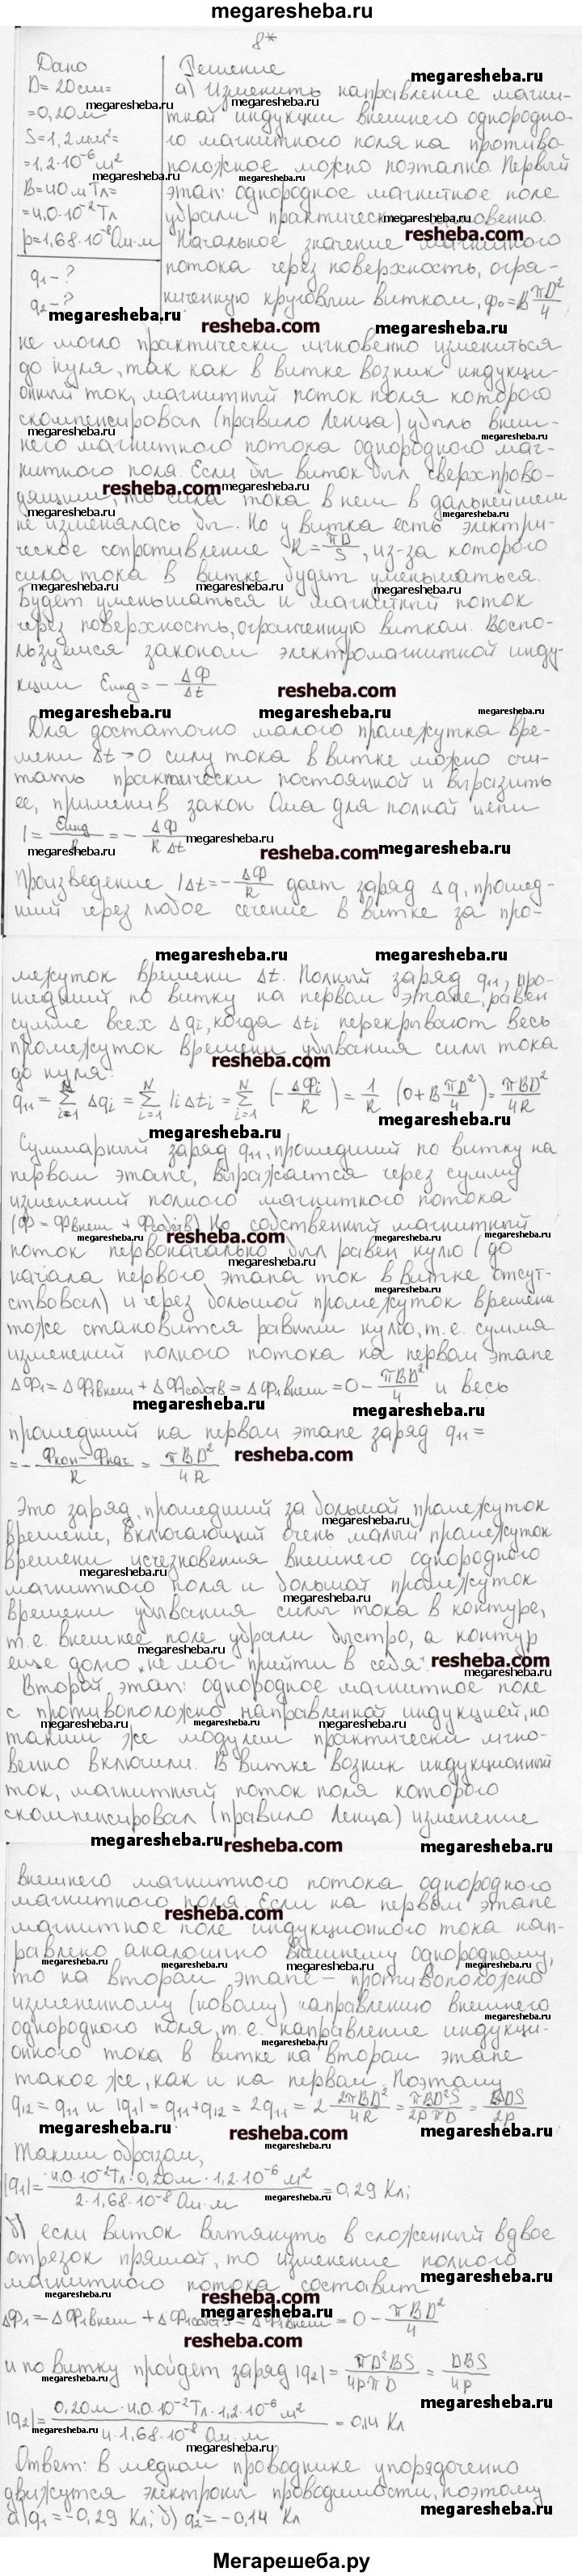 megaresheba.ru
8*
Дано
Решение
D=20см=
=0,20м
S=1,2мм²=
=1,2·10⁻⁶м²
B=40мТл=
=4,0·10⁻²Тл
ρ=1,68·10⁻⁸Ом·м
q₁-?
q₂-?
а) Изменить направление магни-
тной индукции внешнего однородно-
го магнитного поля на противо-
положное можно поэтапно. Первый
этап: однородное магнитное поле
убрали практически мгновенно.
Начальное значение магнитного
потока через поверхность, огра-
ниченную круговым витком, Φ₀=B πD²/4
не могло практически мгновенно измениться
до нуля, так как в витке возник индукци-
онный ток, магнитный поток поля которого
скомпенсировал (правило Ленца) убыль внеш-
него магнитного потока однородного маг-
нитного поля. Если бы виток был сверхпрово-
дящим, то сила тока в нем в дальнейшем
не изменялась бы. Но у витка есть электри-
ческое сопротивление R=πD/S, из-за которого
сила тока в витке будет уменьшаться.
Будет уменьшаться и магнитный поток
через поверхность, ограниченную витком. Воспо-
льзуемся законом электромагнитной инду-
кции Eинд=-ΔΦ/Δt
Для достаточно малого промежутка вре-
мени Δt→0 силу тока в витке можно счи-
тать практически постоянной и выразить
ее, применив закон Ома для полной цепи
I=Eинд/R=-ΔΦ/RΔt
Произведение IΔt=-ΔΦ/R дает заряд Δq, прошед-
ший через любое сечение в витке за про-
межуток времени Δt. Полный заряд q₁₁, про-
шедший по витку на первом этапе, равен
сумме всех Δqᵢ, когда Δtᵢ перекрывают весь
промежуток времени убывания силы тока
до нуля:
q₁₁=Σ Δqᵢ=Σ IᵢΔtᵢ=Σ(-ΔΦᵢ/R)=1/R (0+B πD²/4)=πBD²/4R
Суммарный заряд q₁₁, прошедший по витку на
первом этапе, выражается через сумму
изменений полного магнитного потока
(Φ=Φвнеш+Φсобств). Но собственный магнитный
поток первоначально был равен нулю (до
начала первого этапа ток в витке отсут-
ствовал) и через большой промежуток времени
тоже становится равным нулю, т.е. сумма
изменений полного потока на первом этапе
ΔΦ₁=ΔΦ₁внеш+ΔΦ₁собств=ΔΦ₁внеш=0-πBD²/4 и весь
прошедший на первом этапе заряд q₁₁=
=-Φкон-Φнач/R=πBD²/4R
Это заряд, прошедший за большой промежуток
времени, включающий очень малый промежуток
времени исчезновения внешнего однородного
магнитного поля и большой промежуток
времени убывания силы тока в контуре,
т.е. внешнее поле убрали быстро, а контур
еще долго не мог прийти в себя.
Второй этап: однородное магнитное поле
с противоположно направленной индукцией, но
таким же модулем практически мгно-
венно включили. В витке возник индукционный
ток, магнитный поток поля которого
скомпенсировал (правило Ленца) изменение
внешнего магнитного потока однородного
магнитного поля. Если на первом этапе
магнитное поле индукционного тока нап-
равлено аналогично внешнему однородному,
то на втором этапе - противоположно
измененному (новому) направлению внешнего
однородного поля, т.е. направление индукци-
онного тока в витке на втором этапе
такое же, как и на первом. Поэтому
q₁₂=q₁₁ и |q₁|=q₁₁+q₁₂=2q₁₁=2 2πBD²/4R=πBD²S/2ρπD=BDS/2ρ
Таким образом,
|q₁|=4,0·10⁻²Тл·0,20м·1,2·10⁻⁶м²/2·1,68·10⁻⁸Ом·м=0,29Кл;
б) если виток вытянуть в сложенный вдвое
отрезок прямой, то изменение полного
магнитного потока составит
ΔΦ₁=ΔΦ₁внеш+ΔΦ₁собств=ΔΦ₁внеш=0-πBD²/4
и по витку пройдет заряд |q₂|=πD²BS/4ρπD=DBS/4ρ
|q₂|=0,20м·4,0·10⁻²Тл·1,2·10⁻⁶м²/4·1,68·10⁻⁸Ом·м=0,14Кл
Ответ: в медном проводнике упорядоченно
движутся электроны проводимости, поэтому
а) q₁=-0,29 Кл; б) q₂=-0,14 Кл
Мегарешеба.ру